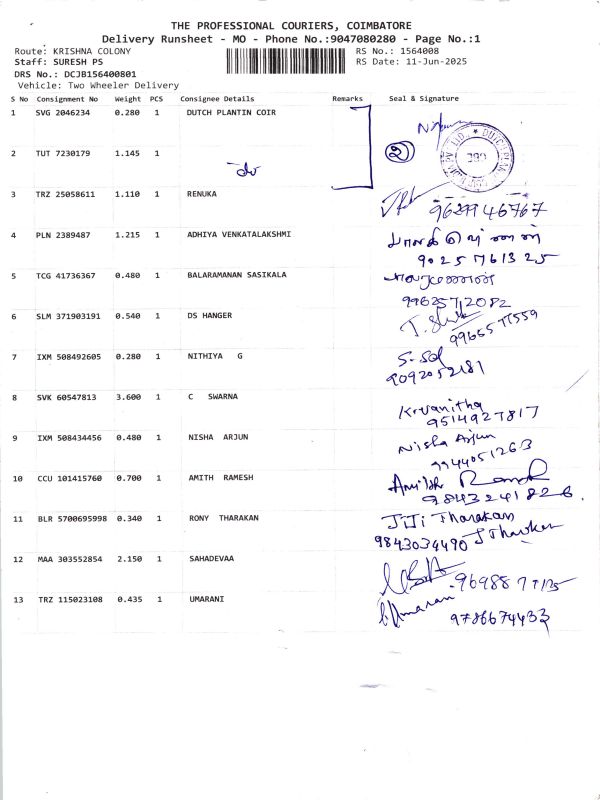 THE PROFESSIONAL COURIERS, COIMBATORE
Delivery Runsheet - MO - Phone No.:9047080280 - Page No.:1
Route: KRISHNA COLONY RS No.: 1564008
Staff: SURESH PS RS Date: 11-Jun-2025
DRS No.: DCJB156400801
Vehicle: Two Wheeler Delivery
S No Consignment No Weight PCS Consignee Details Remarks Seal & Signature
1 SVG 2046234 0.280 1 DUTCH PLANTIN COIR
2 TUT 7230179 1.145 1 do 2
3 TRZ 25058611 1.110 1 RENUKA
9629946767
4 PLN 2389487 1.215 1 ADHIYA VENKATALAKSHMI
9025761325
5 TCG 41736367 0.480 1 BALARAMANAN SASIKALA
9962572082
6 SLM 371903191 0.540 1 DS HANGER
7 IXM 508492605 0.280 1 NITHIYA G
9092052181
8 SVK 60547813 3.600 1 C SWARNA
Kruanitha
9514927817
9 IXM 508434456 0.480 1 NISHA ARJUN Nisha Arjun
9944051263
10 CCU 101415760 0.700 1 AMITH RAMESH
9843241826
11 BLR 5700695998 0.340 1 RONY THARAKAN JiJi Tharakan
9843034490 J Tharakan
12 MAA 303552854 2.150 1 SAHADEVAA
13 TRZ 115023108 0.435 1 UMARANI
9786674433